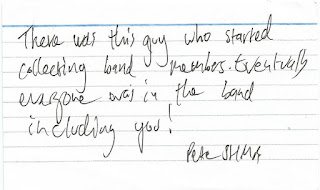 There was this guy who started
collecting band members. Eventually
everyone was in the band
including you!
Pete